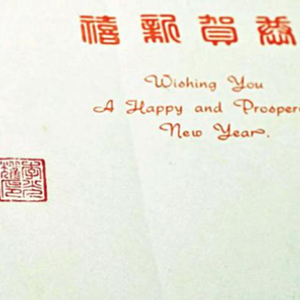 恭賀新禧
Wishing You
A Happy and Prosper
New Year.